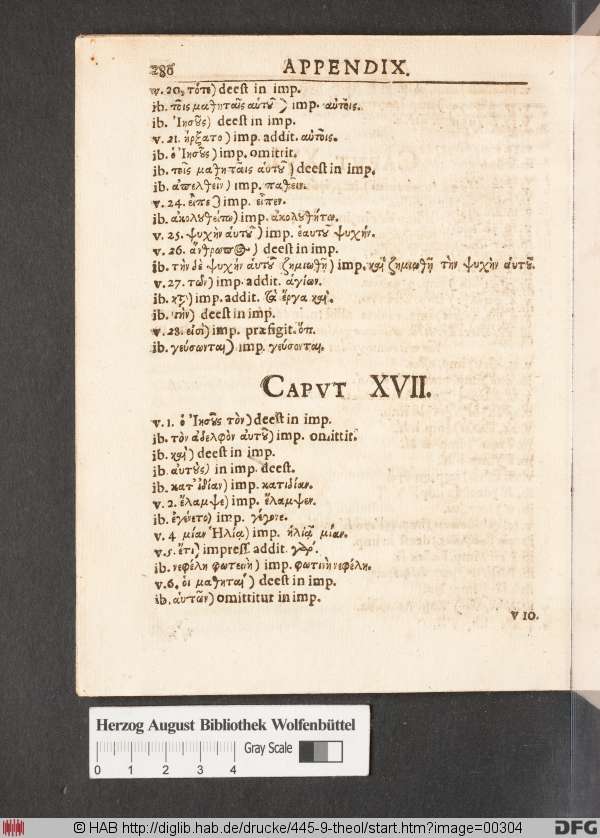 286 APPENDIX.
v. 20, τότε) deest in imp.
ib. τοῖς μαθηταῖς αὑτοῦ) imp. αὐτοῖς.
ib. Ἰησοῦς) deest in imp.
v. 21. ἤρξατο) imp. addit. αὐτοῖς.
ib. ὁ Ἰησοῦς) imp. omittit.
ib. τοῖς μαθηταῖς αὑτοῦ) deest in imp.
ib. ἀπελθεῖν) imp. παθεῖν.
v. 24. εἶπε) imp. εἶπεν.
ib. ἀκολουθείτω) imp. ἀκολουθήτω.
v. 25. ψυχὴν αὑτοῦ) imp. ἑαυτοῦ ψυχήν.
v. 26. ἄνθρωπος) deest in imp.
ib. τὴν δὲ ψυχὴν αὑτοῦ ζημιωθῇ) imp. καὶ ζημιωθῇ τὴν ψυχὴν αὑτοῦ.
v. 27. τῶν) imp. addit. ἁγίων.
ib. κτ) imp. addit. τὰ ἔργα καὶ.
ib. τὴν) deest in imp.
v. 28. εἰσὶ) imp. præfigit. ὅτι.
ib. γεύσωνται) imp. γεύσονται.
CAPVT XVII.
v. 1. ὁ Ἰησοῦς τὸν) deest in imp.
ib. τὸν ἀδελφὸν αὐτοῦ) imp. omittit.
ib. καὶ) deest in imp.
ib. αὐτοὺς) in imp. deest.
ib. κατ' ἰδίαν) imp. κατιδίαν.
v. 2. ἔλαμψε) imp. ἔλαμψεν.
ib. ἐγένετο) imp. γέγονε.
v. 4 μίαν Ἠλίᾳ) imp. ἠλίᾳ μίαν.
v. 5. ἔτι) impress. addit. γάρ.
ib. νεφέλη φωτεινὴ) imp. φωτινὴ νεφέλη.
v. 6. οἱ μαθηταὶ) deest in imp.
ib. αὑτῶν) omittitur in imp.
v 10.
Herzog August Bibliothek Wolfenbüttel
Gray Scale
0 1 2 3 4
© HAB http://diglib.hab.de/drucke/445-9-theol/start.htm?image=00304
DFG